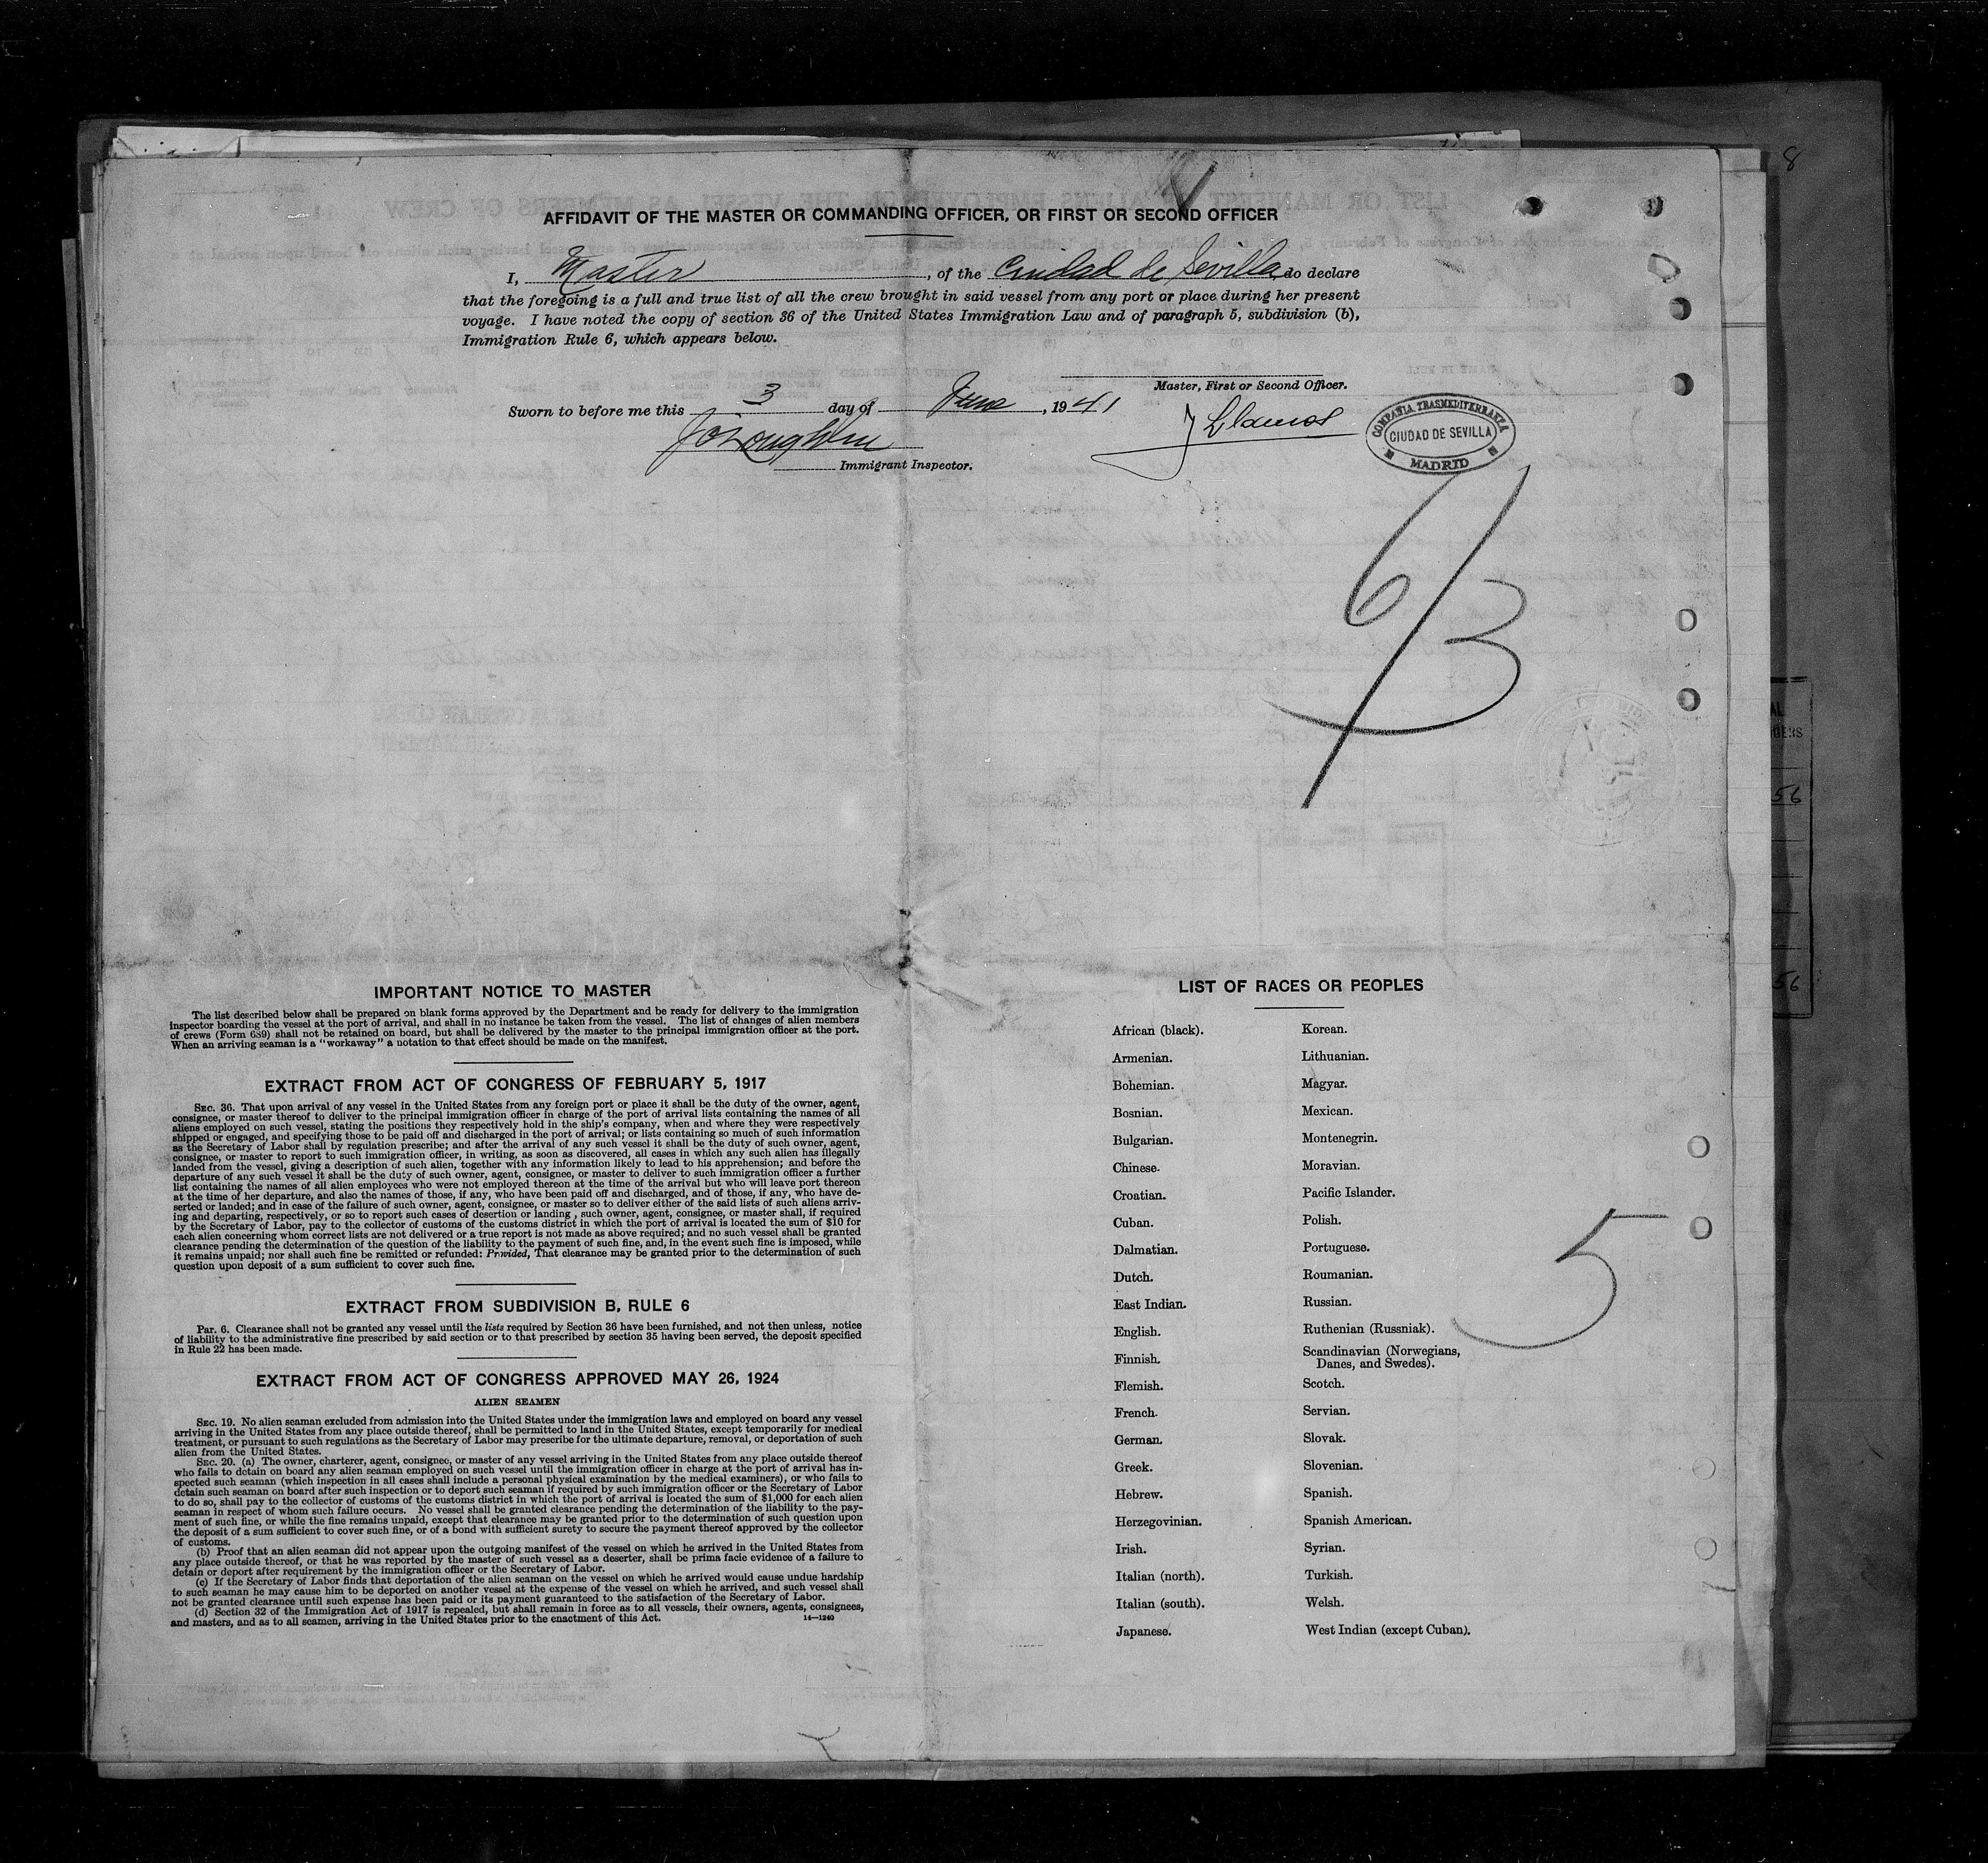 8
AFFIDAVIT OF THE MASTER OR COMMANDING OFFICER, OR FIRST OR SECOND OFFICER
I, Master, of the Ciudad de Sevilla, do declare
that the foregoing is a full and true list of all the crew brought in said vessel from any port or place during her present
voyage. I have noted the copy of section 36 of the United States Immigration Law and of paragraph 5, subdivision (b),
Immigration Rule 6, which appears below.
Master, First or Second Officer.
Sworn to before me this 3 day of June, 1941
J Llamos
COMPAÑIA TRASMEDITERRANEA
CIUDAD DE SEVILLA
MADRID
Immigrant Inspector.
6/3
IMPORTANT NOTICE TO MASTER
The list described below shall be prepared on blank forms approved by the Department and be ready for delivery to the immigration
inspector boarding the vessel at the port of arrival, and shall in no instance be taken from the vessel. The list of changes of alien members
of crews (Form 689) shall not be retained on board, but shall be delivered by the master to the principal immigration officer at the port.
When an arriving seaman is a "workaway" a notation to that effect should be made on the manifest.
EXTRACT FROM ACT OF CONGRESS OF FEBRUARY 5, 1917
SEC. 36. That upon arrival of any vessel in the United States from any foreign port or place it shall be the duty of the owner, agent,
consignee, or master thereof to deliver to the principal immigration officer in charge of the port of arrival lists containing the names of all
aliens employed on such vessel, stating the positions they respectively hold in the ship's company, when and where they were respectively
shipped or engaged, and specifying those to be paid off and discharged in the port of arrival; or lists containing so much of such information
as the Secretary of Labor shall by regulation prescribe; and after the arrival of any such vessel it shall be the duty of such owner, agent,
consignee, or master to report to such immigration officer, in writing, as soon as discovered, all cases in which any such alien has illegally
landed from the vessel, giving a description of such alien, together with any information likely to lead to his apprehension; and before the
departure of any such vessel it shall be the duty of such owner, agent, consignee, or master to deliver to such immigration officer a further
list containing the names of all alien employees who were not employed thereon at the time of the arrival but who will leave port thereon
at the time of her departure, and also the names of those, if any, who have been paid off and discharged, and of those, if any, who have de-
serted or landed; and in case of the failure of such owner, agent, consignee, or master so to deliver either of the said lists of such aliens arriv-
ing and departing, respectively, or so to report such cases of desertion or landing, such owner, agent, consignee, or master shall, if required
by the Secretary of Labor, pay to the collector of customs of the customs district in which the port of arrival is located the sum of $10 for
each alien concerning whom correct lists are not delivered or a true report is not made as above required; and no such vessel shall be granted
clearance pending the determination of the question of the liability to the payment of such fine, and, in the event such fine is imposed, while
it remains unpaid; nor shall such fine be remitted or refunded: Provided, That clearance may be granted prior to the determination of such
question upon deposit of a sum sufficient to cover such fine.
EXTRACT FROM SUBDIVISION B, RULE 6
Par. 6. Clearance shall not be granted any vessel until the lists required by Section 36 have been furnished, and not then unless, notice
of liability to the administrative fine prescribed by said section or to that prescribed by section 35 having been served, the deposit specified
in Rule 22 has been made.
EXTRACT FROM ACT OF CONGRESS APPROVED MAY 26, 1924
ALIEN SEAMEN
SEC. 19. No alien seaman excluded from admission into the United States under the immigration laws and employed on board any vessel
arriving in the United States from any place outside thereof, shall be permitted to land in the United States, except temporarily for medical
treatment, or pursuant to such regulations as the Secretary of Labor may prescribe for the ultimate departure, removal, or deportation of such
alien from the United States.
SEC. 20. (a) The owner, charterer, agent, consignee, or master of any vessel arriving in the United States from any place outside thereof
who fails to detain on board any alien seaman employed on such vessel until the immigration officer in charge at the port of arrival has in-
spected such seaman (which inspection in all cases shall include a personal physical examination by the medical examiners), or who fails to
detain such seaman on board after such inspection or to deport such seaman if required by such immigration officer or the Secretary of Labor
to do so, shall pay to the collector of customs of the customs district in which the port of arrival is located the sum of $1,000 for each alien
seaman in respect of whom such failure occurs. No vessel shall be granted clearance pending the determination of the liability to the pay-
ment of such fine, or while the fine remains unpaid, except that clearance may be granted prior to the determination of such question upon
the deposit of a sum sufficient to cover such fine, or of a bond with sufficient surety to secure the payment thereof approved by the collector
of customs.
(b) Proof that an alien seaman did not appear upon the outgoing manifest of the vessel on which he arrived in the United States from
any place outside thereof, or that he was reported by the master of such vessel as a deserter, shall be prima facie evidence of a failure to
detain or deport after requirement by the immigration officer or the Secretary of Labor.
(c) If the Secretary of Labor finds that deportation of the alien seaman on the vessel on which he arrived would cause undue hardship
to such seaman he may cause him to be deported on another vessel at the expense of the vessel on which he arrived, and such vessel shall
not be granted clearance until such expense has been paid or its payment guaranteed to the satisfaction of the Secretary of Labor.
(d) Section 32 of the Immigration Act of 1917 is repealed, but shall remain in force as to all vessels, their owners, agents, consignees,
and masters, and as to all seamen, arriving in the United States prior to the enactment of this Act. 14—1240
LIST OF RACES OR PEOPLES
African (black).
Armenian.
Bohemian.
Bosnian.
Bulgarian.
Chinese.
Croatian.
Cuban.
Dalmatian.
Dutch.
East Indian.
English.
Finnish.
Flemish.
French.
German.
Greek.
Hebrew.
Herzegovinian.
Irish.
Italian (north).
Italian (south).
Japanese.
Korean.
Lithuanian.
Magyar.
Mexican.
Montenegrin.
Moravian.
Pacific Islander.
Polish.
Portuguese.
Roumanian.
Russian.
Ruthenian (Russniak).
Scandinavian (Norwegians,
Danes, and Swedes).
Scotch.
Servian.
Slovak.
Slovenian.
Spanish.
Spanish American.
Syrian.
Turkish.
Welsh.
West Indian (except Cuban).
5
56
56